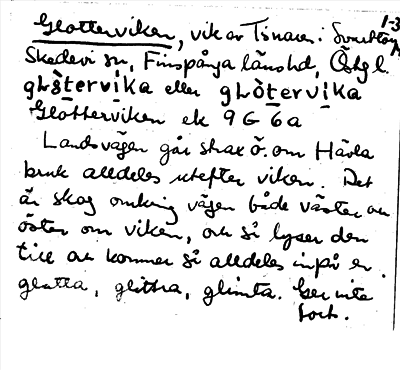 1-3
Glotterviken, vik av Tisnaren: Svarttorp
Skedevi sn, Finspånga länshd, Östgl.
glòtervika eller glòtervika
Glotterviken ek 9 G 6a
Landsvägen går strax ö. om Hävla
bruk alldeles utefter viken. Det
är skog omkring vägen både väster och
öster om viken, och så lyser den
till och kommer så alldeles inpå en.
glatta, glittra, glimta. Ger inte
bort.